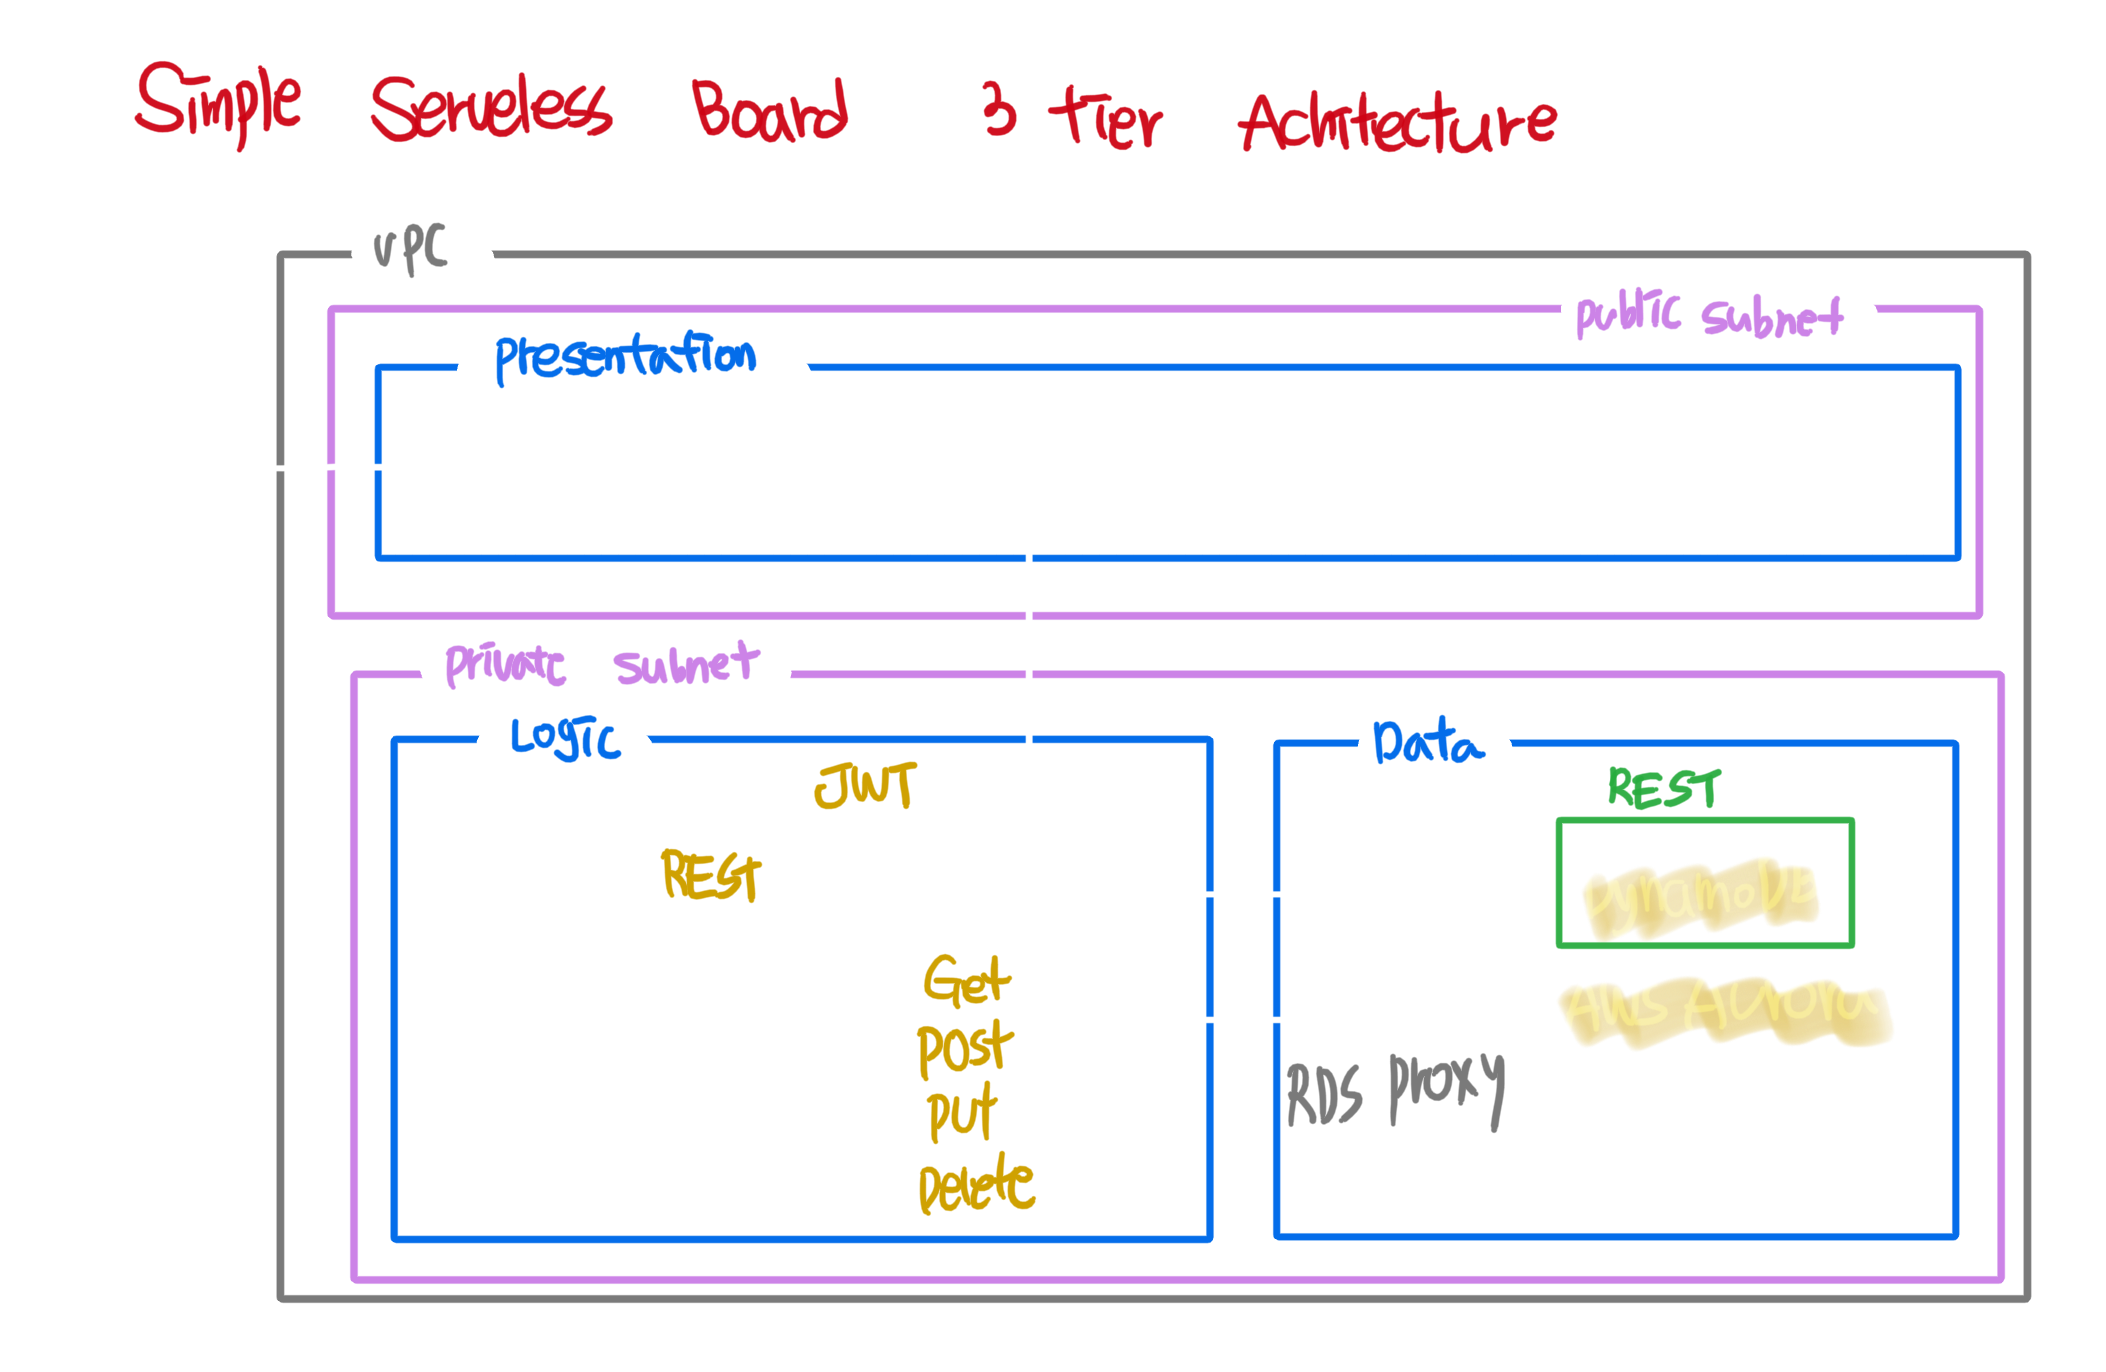 Simple Serveless Board 3 tier Achitecture
VPC
public subnet
presentation
private subnet
Logic
JWT
REST
Get
post
put
Delete
Data
REST
DynamoDB
AWS Aurora
RDS proxy